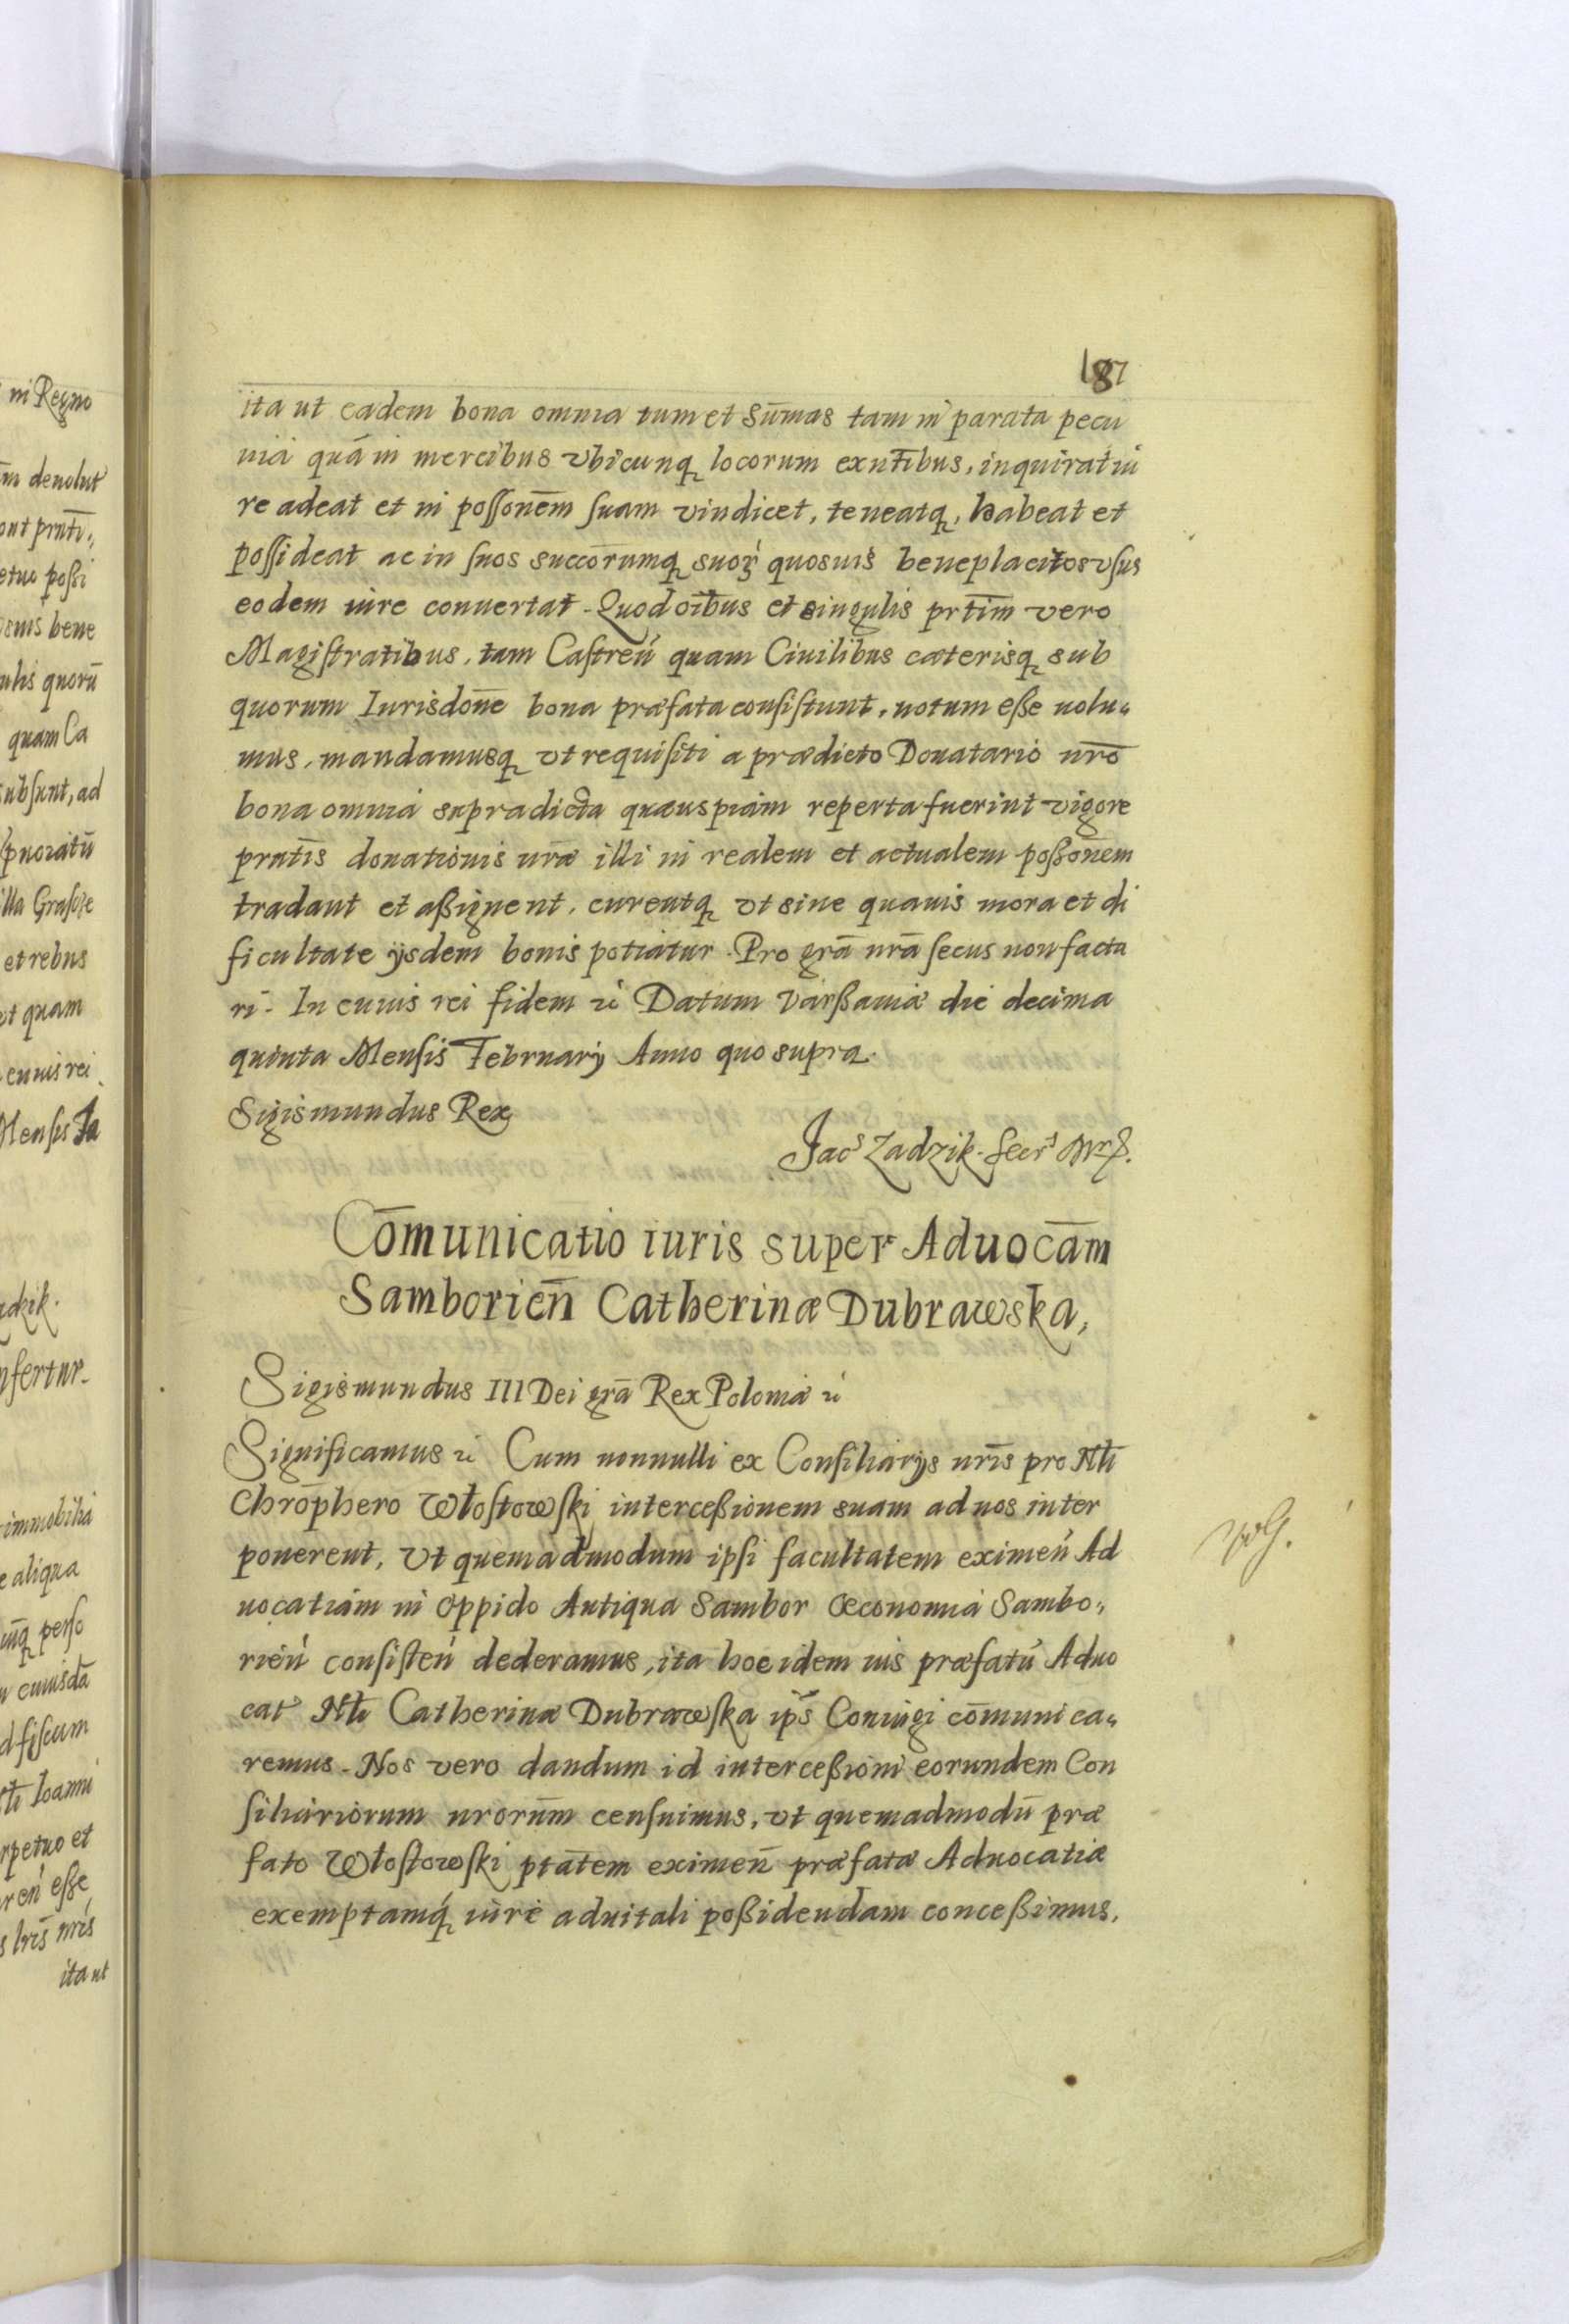 187
ita ut eadem bona omnia tum et Sūmas tam in parata pecu
nia quā in mercibus vbicunq locorum exnt̄ibus, inquirat iu
re adeat et in possonēm suam vindicet, teneatq, habeat et
possideat ac in suos succorumq suoꝝ quosuis beneplacitos vsus
eodem iure conuertat. Quod oībus et singulis prtīm vero
Magistratibus, tam Castreń quam Ciuilibus cæterisq sub
quorum Iurisdonē bona præfata consistunt, notum eße uolu„
mus, mandamusq vt requisiti a prædicto Donatario nrō
bona omnia supradicta quæuspiam reperta fuerint vigore
prntis donationis nræ illi in realem et actualem poßonēm
tradant et aßignent, curentq vt sine quauis mora et di
ficultate ijsdem bonis potiatur. Pro grā nrā secus non factu
ri. In cuius rei fidem zc Datum Varßauiæ die decima
quinta Mensis Februarij Anno quo supra.
Sigismundus Rex
Jac^s Zadzik. Secr^s
Cōmunicatio iuris super Aduocām
Samborień Catherinæ Dubrawska,
Sigismundus III Dei grā Rex Poloniæ zc
Significamus zc Cum nonnulli ex Consiliarijs nrīs pro Nłi
Chrōphero Włostowski interceßionem suam ad nos inter
ponerent, Vt quemadmodum ipsi facultatem eximeń Ad
uocatiam in oppido Antiqua Sambor Œconomia Sambo„
rień consisteń dederamus, ita hoc idem ius præfatū Aduo
cat Nłi Catherinæ Dubrawska ips Coniugi cōmunica„
remus. Nos vero dandum id interceßioni eorundem Con
siliariorum nrorūm censuimus, vt quemadmodū præ
fato Włostowski ptātem eximeń præfatæ Aduocatiæ
exemptamq iure aduitali poßidendam conceßimus,
ni Regno
deuolut
poßi
bene
quorū
quam Ca
ubsunt, ad
et rebus
ut quam
cuius rei
Mensis Ja
nfertur
immobilia
aliqua
perso
cuiusdā
d fiscum
Ioanni
rpetuo et
eße
nris
ita ut